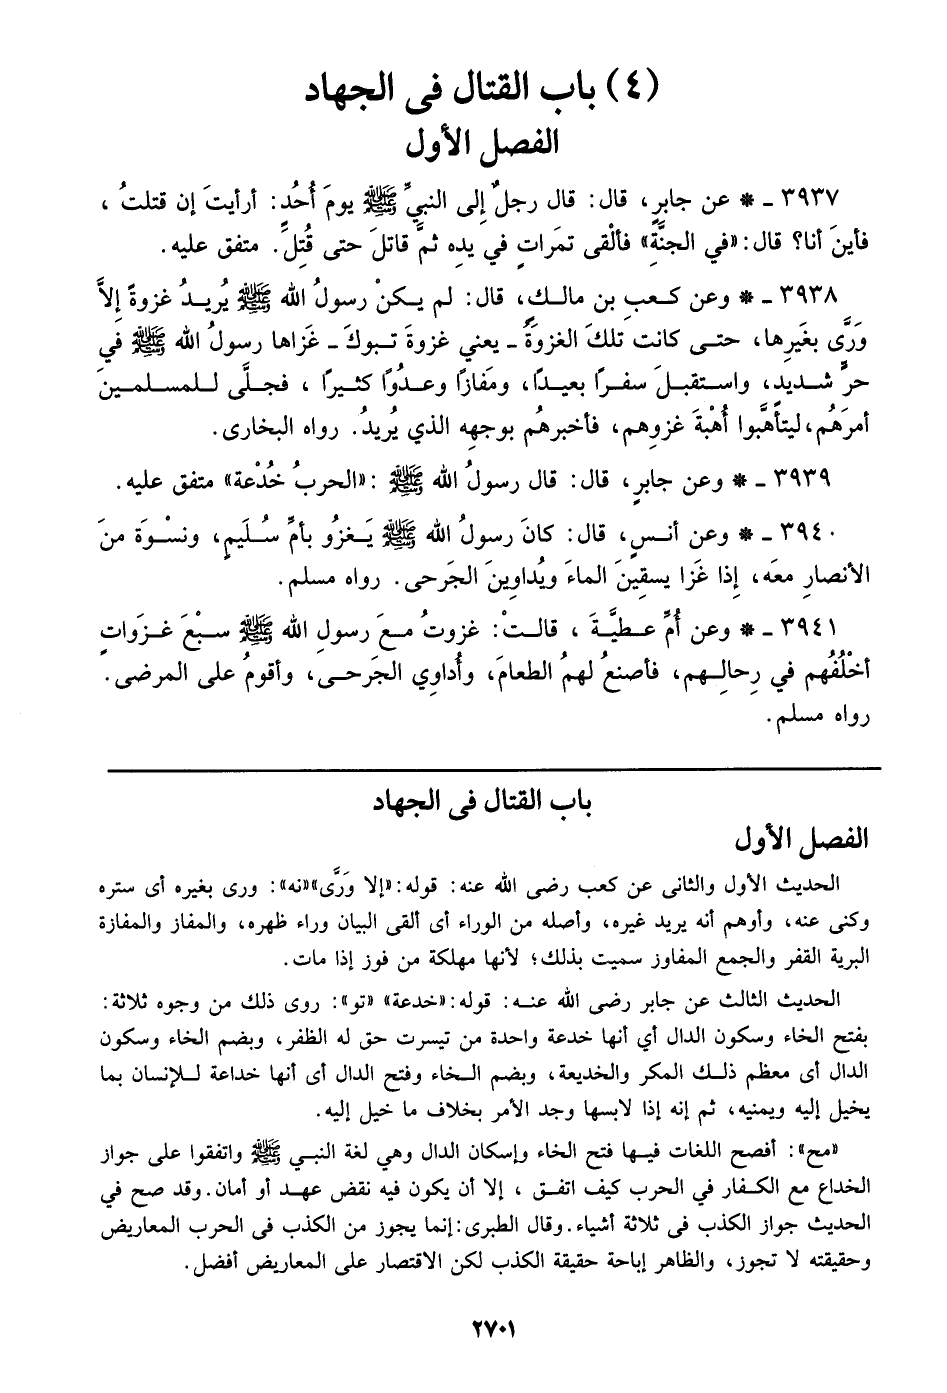 (٤) باب القتال فى الجهاد
الفصل الأول
٣٩٣٧ ـ * عن جابرٍ، قال: قال رجلٌ إلى النبيِّ ﷺ يومَ أُحُدٍ: أرأيتَ إن قتلتُ ،
فأينَ أنا؟ قال: «في الجنَّةِ» فألْقى تمَراتٍ في يدِه ثمَّ قاتلَ حتى قُتِلَ. متفق عليه.
٣٩٣٨ ـ * وعن كعبِ بن مالكٍ، قال: لم يكنْ رسولُ الله ﷺ يُريدُ غزوةً إلاَّ
وَرَّى بغَيرِها، حتى كانت تلكَ الغزوَةُ ـ يعني غزوةَ تبوكَ ـ غزَاها رسولُ الله ﷺ في
حرٍّ شديدٍ، واستقبلَ سفرًا بعيدًا، ومَفازًا وعدُوًا كثيرًا ، فجلَّى للمسلمينَ
أمرَهُم، ليتأهَّبوا أُهْبةَ غزوِهم، فأخبرهُم بوجهِه الذي يُريدُ. رواه البخارى.
٣٩٣٩ ـ * وعن جابرٍ، قال: قال رسولُ الله ﷺ :«الحربُ خُدْعة» متفق عليه.
٣٩٤٠ ـ * وعن أنسٍ، قال: كانَ رسولُ الله ﷺ يَغزُو بأمِّ سُلَيمٍ، ونسْوَة منَ
الأنصارِ معَه، إذا غَزا يسقِينَ الماءَ ويُداوِينَ الجَرحى. رواه مسلم.
٣٩٤١ ـ * وعن أُمِّ عطيَّةَ ، قالتْ: غزوتُ معَ رسولِ الله ﷺ سبْعَ غزَواتٍ
أخْلُفُهم في رِحالِهم، فأصنعُ لهمُ الطعامَ، وأُداوِي الجَرحى، وأقومُ على المرضى.
رواه مسلم.
باب القتال فى الجهاد
الفصل الأول
الحديث الأول والثانى عن كعب رضى الله عنه: قوله:«إلا وَرَّى»«نه»: ورى بغيره أى ستره
وكنى عنه، وأوهم أنه يريد غيره، وأصله من الوراء أى ألقى البيان وراء ظهره، والمفاز والمفازة
البرية القفر والجمع المفاوز سميت بذلك؛ لأنها مهلكة من فوز إذا مات.
الحديث الثالث عن جابر رضى الله عنه: قوله:«خدعة» «تو»: روى ذلك من وجوه ثلاثة:
بفتح الخاء وسكون الدال أي أنها خدعة واحدة من تيسرت حق له الظفر، وبضم الخاء وسكون
الدال أى معظم ذلك المكر والخديعة، وبضم الخاء وفتح الدال أى أنها خداعة للإنسان بما
يخيل إليه ويمنيه، ثم إنه إذا لابسها وجد الأمر بخلاف ما خيل إليه.
«مح»: أفصح اللغات فيها فتح الخاء وإسكان الدال وهي لغة النبي ﷺ واتفقوا على جواز
الخداع مع الكفار في الحرب كيف اتفق ، إلا أن يكون فيه نقض عهد أو أمان. وقد صح في
الحديث جواز الكذب فى ثلاثة أشياء. وقال الطبرى: إنما يجوز من الكذب فى الحرب المعاريض
وحقيقته لا تجوز، والظاهر إباحة حقيقة الكذب لكن الاقتصار على المعاريض أفضل.
٢٧٠١